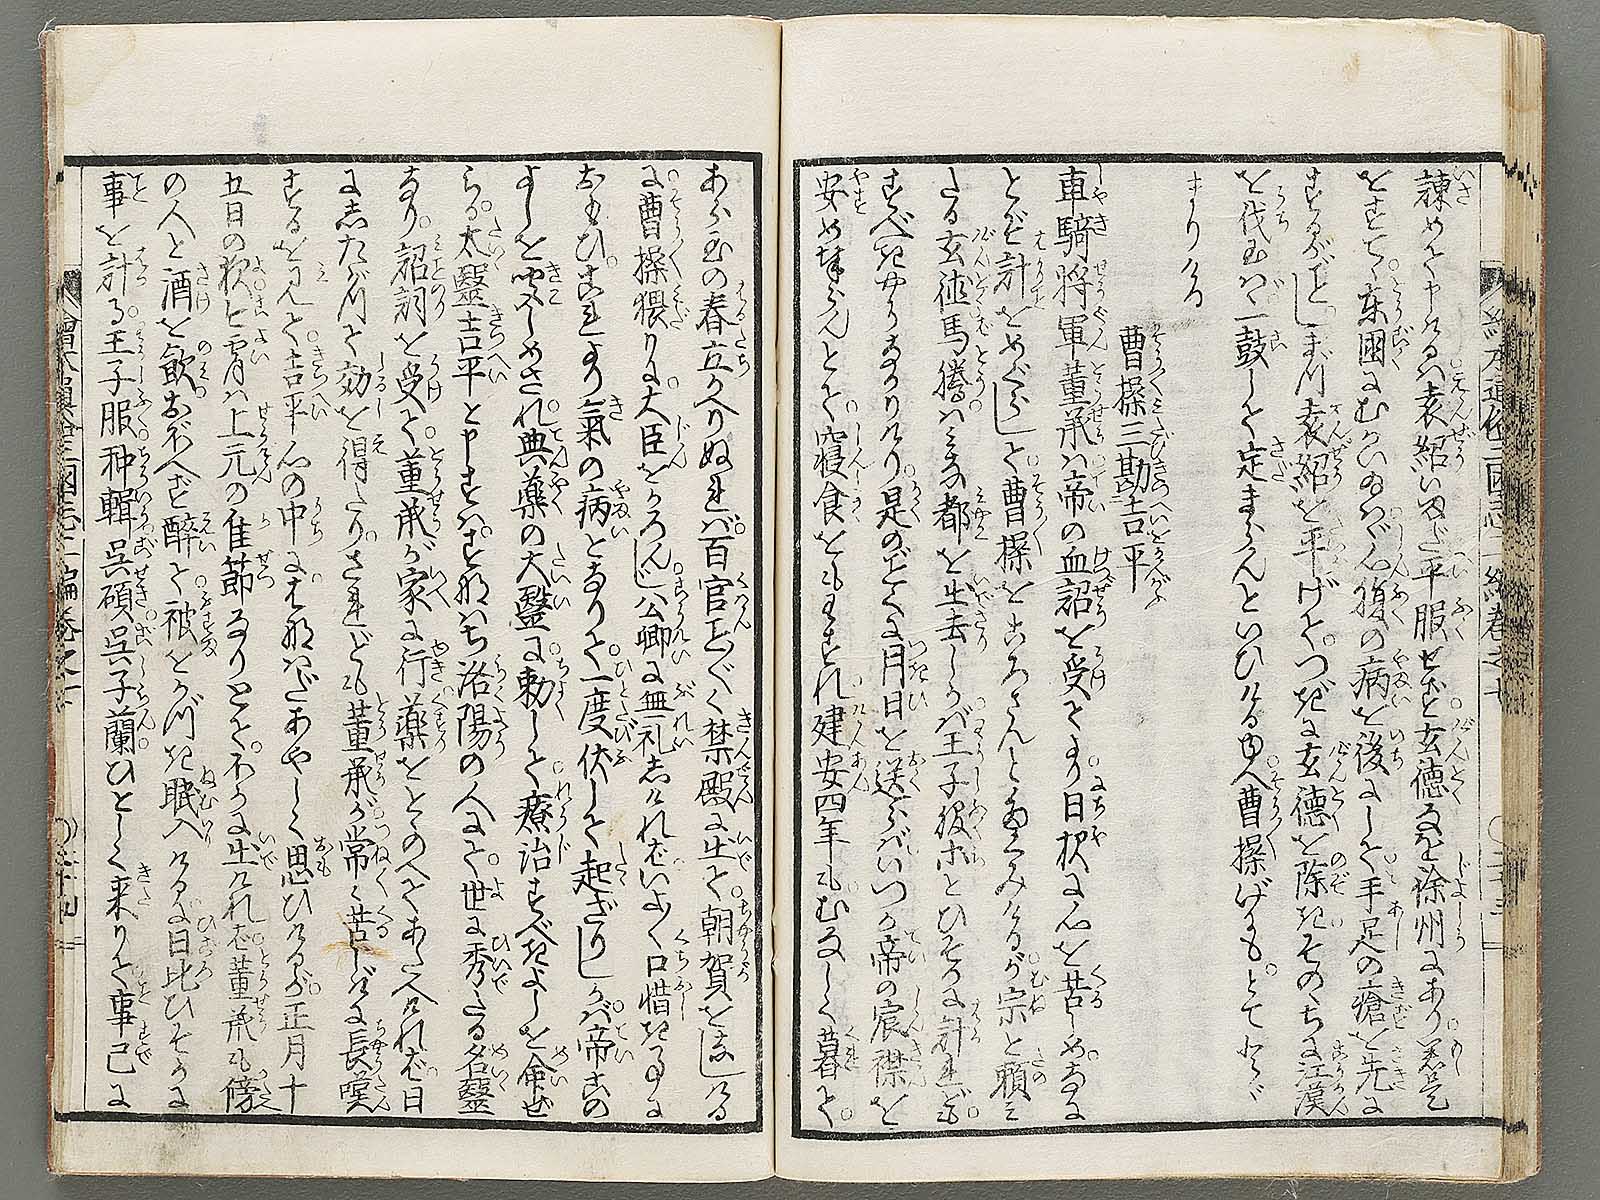 諫めて申けるは袁紹いまだ平服せず玄徳なを徐州にあり若兵
をすてゝ東國にむかゐ給はゞ心腹の病を後にして手足の瘡を先に
するがごとしまづ袁紹を平げてつぎに玄徳を除きそのちに江漢
を伐玉はゞ一鼓して定まらんといひける由へ曹操げにもとてとゞ
まりける
曹操三勘吉平
車騎将軍董承は帝の血詔を受てより日夜に心を苦しめなに
とぞ計をめぐらして曹操をころさんと
たる玄徳馬騰はみな都を出去しかば王子服等とひそかに計れども
すべきやうなかりけり是のごとく月日を送らばいつか帝の宸襟を
安め奉らんとて寝食をもわすれ建安四年もむなしく暮て
あら玉の春立かへりぬれば百官ことごとく禁殿に出て朝賀をなしける
に曹操猥りに大臣をかろんじ公卿に無礼しければいよ〱口惜き事に
おもひこれより氣の病となりて一度伏して起ざりしかば帝この
よしを聞しめされ典薬の大醫に勅して療治すべきよしを命ぜ
らる太醫吉平と申すはすなはち洛陽の人にて世に秀たる名醫
なり詔詞を受て董承が家に行薬をとゝのへてあたへければ日
にしたがつて効を得たりされども董承が常〻苦しげに長嘆
するを見て吉平心の中にはなはだあやしく思ひけるが正月十
五日の夜今宵は上元の佳節なりとてほかに出ければ董承も傍
の人と酒を飲おぼへず醉て被をかづき眠入けるに日比ひそかに
事を計る王子服种輯呉碩呉子蘭ひとしく来りて事已に